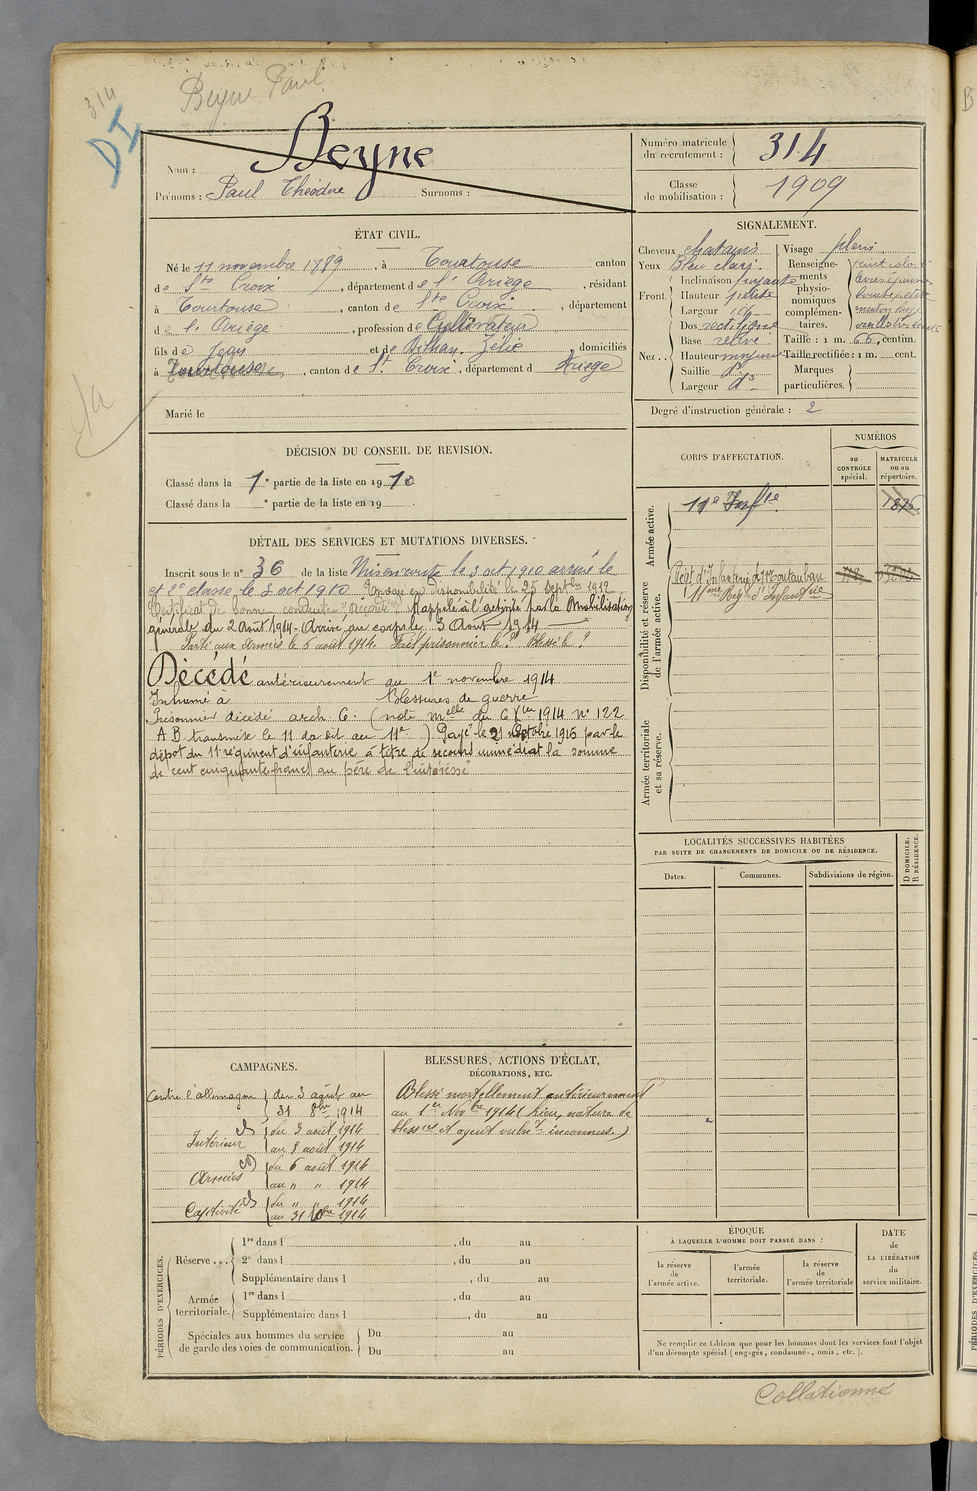 314
Beyne Paul
DI
Nom : Beyne
Prénoms : Paul Théodore Surnoms :
Numéro matricule du recrutement : 314
Classe de mobilisation : 1909
ÉTAT CIVIL.
Né le 11 novembre 1889, à Tourtouse canton
de Ste Croix, département de l'Ariège, résidant
à Tourtouse, canton de Ste Croix, département
de l'Ariège, profession de Cultivateur
fils de Jean et de Zélie, domiciliés
à Tourtouse, canton de St Croix, département d Ariège
Marié le
SIGNALEMENT.
Cheveux chatains Visage plein
Yeux Bleu clair.
Front Inclinaison fuyante
Hauteur petite
Largeur id
Nez Dos rectiligne
Base relevé
Hauteur moyenne
Saillie do
Largeur do
Renseignements physionomiques complémentaires.
Taille : 1 m. 66 centim.
Taille rectifiée : 1 m. cent.
Marques particulières.
Degré d'instruction générale : 2
DÉCISION DU CONSEIL DE REVISION.
Classé dans la 1e partie de la liste en 1910
Classé dans la e partie de la liste en 19
CORPS D'AFFECTATION.
NUMÉROS
au CONTRÔLE spécial.
MATRICULE ou au répertoire.
Armée active.
11e Inftie
Disponibilité et réserve de l'armée active.
Régt d'Infanterie de Montauban
11ème Rég. d'Infanterie
Armée territoriale et sa réserve.
DÉTAIL DES SERVICES ET MUTATIONS DIVERSES.
Inscrit sous le n° 36 de la liste Mis en route le 3 oct 1910 arrivé le
et 2e classe, le 3 oct 1910. Envoyé en disponibilité le 25 Septbre 1912
Certificat de bonne conduite "accordé" Rappelé à l'activité par la Mobilisation
générale du 2 Août 1914. Arrivé au corps le 3 Août 1914
Parti aux Armées le 6 août 1914. Fait prisonnier le ? Blessé le ?
Décédé antérieurement au 1e novembre 1914
Inhumé à Blessures de guerre
Prisonnier décédé arch. G. (note melle du 6 Xbre 1914 n° 122
A B transmise le 11 du dit au 11e) Payé le 21 octobre 1916 par le
dépôt du 11e régiment d'infanterie à titre de secours immédiat la somme
de cent cinquante francs au père de l'intéressé
LOCALITÉS SUCCESSIVES HABITÉES
PAR SUITE DE CHANGEMENTS DE DOMICILE OU DE RÉSIDENCE.
Dates. Communes. Subdivisions de région. D DOMICILE. R RÉSIDENCE.
CAMPAGNES.
Contre l'allemagne du 3 août au
31 8bre 1914
Intérieur du 3 août 1914
au 5 août 1914
Armées du 6 août 1914
au " " 1914
Captivité du " " 1914
au 31 8bre 1914
BLESSURES, ACTIONS D'ÉCLAT,
DÉCORATIONS, ETC.
Blessé mortellement antérieurement
au 1er Novbre 1914 (lieu, nature de
blessres et agent vulnt inconnus.)
PÉRIODES D'EXERCICES.
Réserve... 1re dans l , du au
2e dans l , du au
Supplémentaire dans l , du au
Armée territoriale. 1re dans l , du au
Supplémentaire dans l , du au
Spéciales aux hommes du service de garde des voies de communication. Du au
Du au
ÉPOQUE
À LAQUELLE L'HOMME DOIT PASSER DANS :
la réserve de l'armée active.
l'armée territoriale.
la réserve de l'armée territoriale
DATE de LA LIBÉRATION du service militaire.
Ne remplir ce tableau que pour les hommes dont les services font l'objet
d'un décompte spécial (engagés, condamnés, omis, etc.).
Collationné